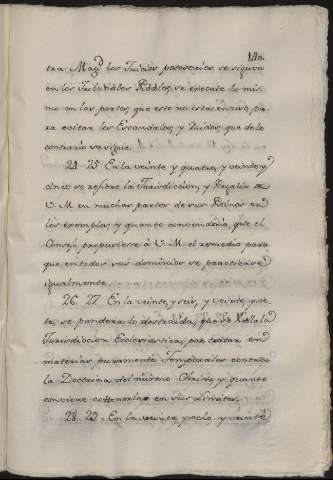 140.
tra Mag.d los Juicios posesorios se siguen
en los Tribunales Rs. se execute lo mis
mo en las partes, que esto no está en uso, pa
ra evitar los Escandalos, y Ruidos, que de lo
contrario se sigue.
24. 25. En la veinte y quatro, y veinte y
cinco se refiere la Jurisdiccion, y Regalia de
V. M. en muchas partes de sus Reinos con
los exemplos, y quanto convendria, que el
Consejo propusiesse à V. M. el remedio para
que en todos sus dominios se practicase
igualmente.
26. 27. En la veinte y seis, y veinte y sie
te, se pondera lo destruida, que se halla la
Jurisdiccion Ecclesiastica, por tratar en
materias puramente Temporales contra
la Doctrina del mismo Christo, y quanto
conviene contenerlas en sus Limites.
28. 29. En la veinte y ocho, y veinte